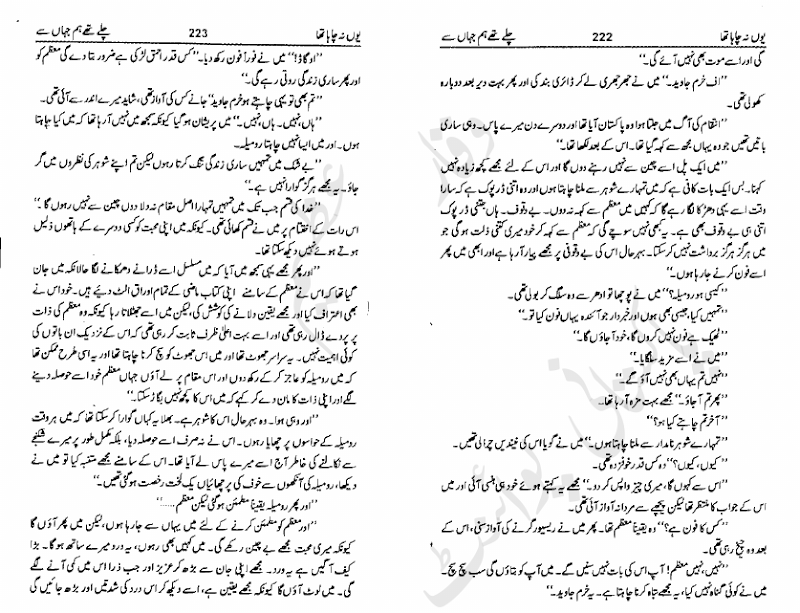 یوں نہ چاہا تھا 222 چلے تھے ہم جہاں سے
گی اور اسے موت بھی نہیں آئے گی۔
”اف خرم جاوید۔“ میں نے جھرجھری لے کر ڈائری بند کی اور پھر بہت دیر بعد دوبارہ
کھولی تھی۔
”انتقام کی آگ میں جلتا ہوا وہ پاکستان آیا تھا اور دوسرے دن میرے پاس۔ وہی ساری
باتیں تھیں جو وہ یہاں مجھ سے کہہ گیا تھا۔ اس کے بعد لکھا تھا۔“
”میں ایک پل اسے چین سے نہیں رہنے دوں گا اور اس کے لئے مجھے کچھ زیادہ نہیں
کہنا۔ بس ایک بات کافی ہے کہ میں تمہارے شوہر سے ملنا چاہتا ہوں اور وہ اتنی ڈرپوک ہے کہ سارا
وقت اسے یہی دھڑکا لگا رہے گا کہ کہیں میں معظم سے کہہ نہ دوں۔ بے وقوف۔ ہاں جتنی ڈرپوک
اتنی ہی بے وقوف بھی ہے۔ یہ بھی نہیں سوچے گی کہ معظم سے کہہ کر خود میری کتنی ذلت ہو گی جو
میں ہرگز ہرگز برداشت نہیں کر سکتا۔ بہرحال اس کی بے وقوفی پر مجھے پیار آ رہا ہے اور ابھی میں پھر
اسے فون کرنے جا رہا ہوں۔“
”کیسی ہو رومیلہ؟“ میں نے پوچھا تو ادھر سے وہ سلگ کر بولی تھی۔
”تمہیں کیا، جیسی بھی ہوں اور خبردار جو آئندہ یہاں فون کیا تو۔“
”ٹھیک ہے فون نہیں کروں گا، خود آ جاؤں گا۔“
”میں نے اسے مزید سلگایا۔“
”نہیں تم یہاں بھی نہیں آؤ گے۔“
”پھر تم آ جاؤ۔“ مجھے بہت مزہ آ رہا تھا۔
”آخر تم چاہتے کیا ہو؟“
”تمہارے شوہر نامدار سے ملنا چاہتا ہوں۔“ میں نے گویا اس کی نیندیں چرا لی تھیں۔
”کیوں، کیوں؟“ وہ کس قدر خوفزدہ تھی۔
”اس سے کہوں گا، میری چیز واپس کر دو۔“ مجھے یہ کہتے ہوئے خود ہی ہنسی آئی اور میں
اس کے جواب کا منتظر تھا لیکن پیچھے سے مردانہ آواز آئی تھی۔
”کس کا فون ہے؟“ وہ یقیناً معظم تھا۔ پھر میں نے ریسیور گرنے کی آواز سنی، اس کے
بعد وہ چیخ رہی تھی۔
”نہیں، نہیں معظم! آپ اس کی بات نہیں سنیں گے۔ میں آپ کو بتاؤں گی سب سچ سچ۔
میں نے کوئی گناہ نہیں کیا، یہ مجھے تباہ کرنا چاہتا ہے۔ یہ خرم جاوید۔“
یوں نہ چاہا تھا 223 چلے تھے ہم جہاں سے
”او گاڈ!“ میں نے فوراً فون رکھ دیا۔ ”کس قدر احمق لڑکی ہے ضرور بتا دے گی معظم کو
اور پھر ساری زندگی روتی رہے گی۔“
”تم بھی تو یہی چاہتے ہو خرم جاوید“ جانے کس کی آواز تھی، شاید میرے اندر سے آئی تھی۔
”ہاں، نہیں۔ ہاں، نہیں۔“ میں پریشان ہو گیا کیونکہ سمجھ میں نہیں آ رہا تھا کہ میں کیا چاہتا
ہوں۔ اور میں ایسا نہیں چاہتا رومیلہ۔
بے شک میں تمہیں ساری زندگی تنگ کرتا رہوں لیکن تم اپنے شوہر کی نظروں میں گر
جاؤ۔ یہ مجھے ہرگز گوارا نہیں ہے۔“
”خدا کی قسم جب تک میں تمہیں تمہارا اصل مقام نہ دلا دوں چین سے نہیں رہوں گا۔“
اس رات کے اختتام پر میں نے قسم کھائی تھی۔ کیونکہ میں اپنی محبت کو کسی دوسرے کے ہاتھوں ذلیل
ہوتے ہوئے نہیں دیکھ سکتا تھا۔
”اور پھر مجھے یہی سمجھ میں آیا کہ میں مسلسل اسے ڈرانے دھمکانے لگا حالانکہ میں جان
گیا تھا کہ اس نے معظم کے سامنے اپنی کتاب ماضی کے تمام اوراق الٹ دیئے ہیں۔ خود اس نے
بھی اعتراف کیا اور مجھے یقین دلانے کی کوشش کی، لیکن میں اسے جھٹلاتا رہا کیونکہ وہ معظم کی ذات
پر پردے ڈال رہی تھی اور اسے بہت اعلیٰ ظرف ثابت کر رہی تھی کہ اس کے نزدیک ان باتوں کی
کوئی اہمیت نہیں۔ یہ سراسر جھوٹ تھا اور میں اس جھوٹ کو سچ کرنا چاہتا تھا اور یہ اسی طرح ممکن تھا
کہ میں رومیلہ کو عاجز کر کے رکھ دوں اور اس مقام پر لے آؤں جہاں معظم خود اسے حوصلہ دینے
لگے اور اپنی ذات کا مان دے کر کہے کہ میں اس کا کچھ نہیں بگاڑ سکتا۔“
اور وہی ہوا۔ وہ بہرحال اس کا شوہر ہے۔ بھلا یہ کہاں گوارا کر سکتا تھا کہ میں ہر وقت
رومیلہ کے حواسوں پر چھایا رہوں۔ اس نے نہ صرف اسے حوصلہ دیا، بلکہ مکمل طور پر میرے شکنجے
سے نکالنے کی خاطر آج اسے میرے پاس لے آیا تھا۔ اس کے سامنے مجھے متنبہ کیا تو میں نے
دیکھا، رومیلہ کی آنکھوں سے خوف کی پرچھائیاں یک لخت رخصت ہو گئی تھیں۔“
”اور پھر رومیلہ یقیناً مطمئن ہو گئی لیکن معظم.....“
”اور معظم کو مطمئن کرنے کے لئے میں یہاں سے جا رہا ہوں، لیکن میں پھر آؤں گا
کیونکہ میری محبت مجھے بے چین رکھے گی۔ میں کہیں بھی رہوں، یہ درد میرے ساتھ ہو گا۔ بڑا
کیف آگیں ہے یہ درد۔ مجھے اپنی جان سے بڑھ کر عزیز اور جب ذرا اس میں کمی آنے لگے
گی۔ میں لوٹ آؤں گا کیونکہ مجھے یقین ہے، اسے دیکھ کر اس درد کی شدتیں اور بڑھ جائیں گی